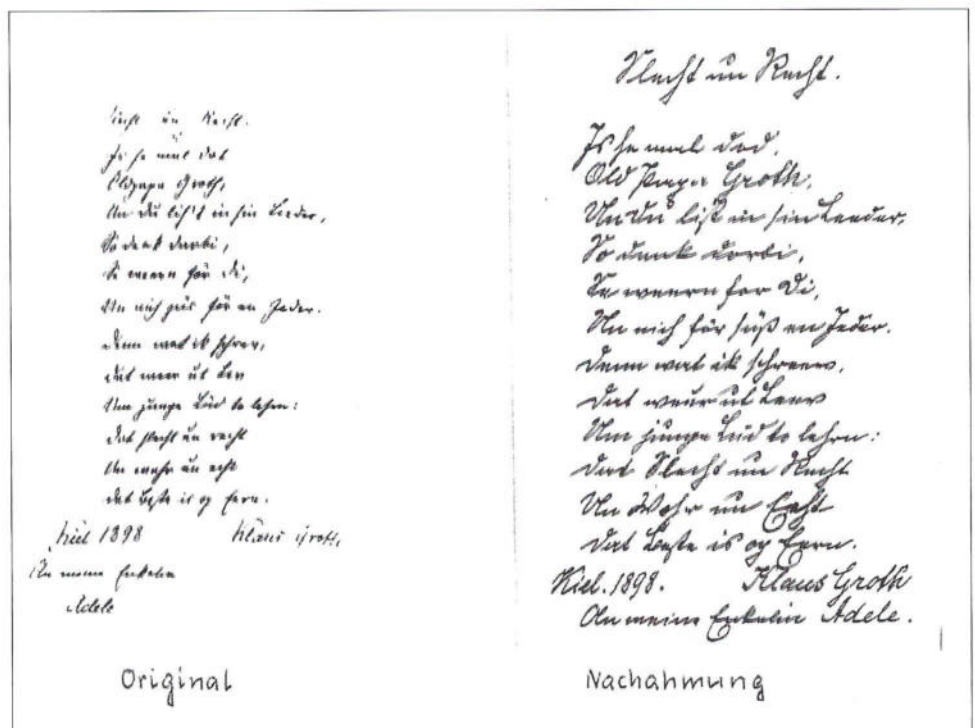 Slecht un Recht.
Is he mal dod
Oldpapa Groth,
Un Du lis't in sin Leeder,
So denk darbi,
Se weern för Di,
Un nich för en Jeder.
Denn wat ik schrev,
dat weer ut Lev
Um junge Lüd to lehren:
dat slecht un recht
Un wahr un echt
dat Beste is op Eern.
Kiel 1898 Klaus Groth,
An meine Enkelin
Adele
Original
Slecht un Recht.
Is he mal dod,
Old Papa Groth,
Un Du list in sin Leeder,
So denk dorbi,
Se weern for Di,
Un nich för süß en Jeder.
Denn wat ik schreev,
Dat weer ut Leev
Um junge Lüd to lehrn:
Dat Slecht un Recht
Un Wohr un Echt
Dat Beste is op Eern.
Kiel. 1898. Klaus Groth
An meine Enkelin Adele.
Nachahmung